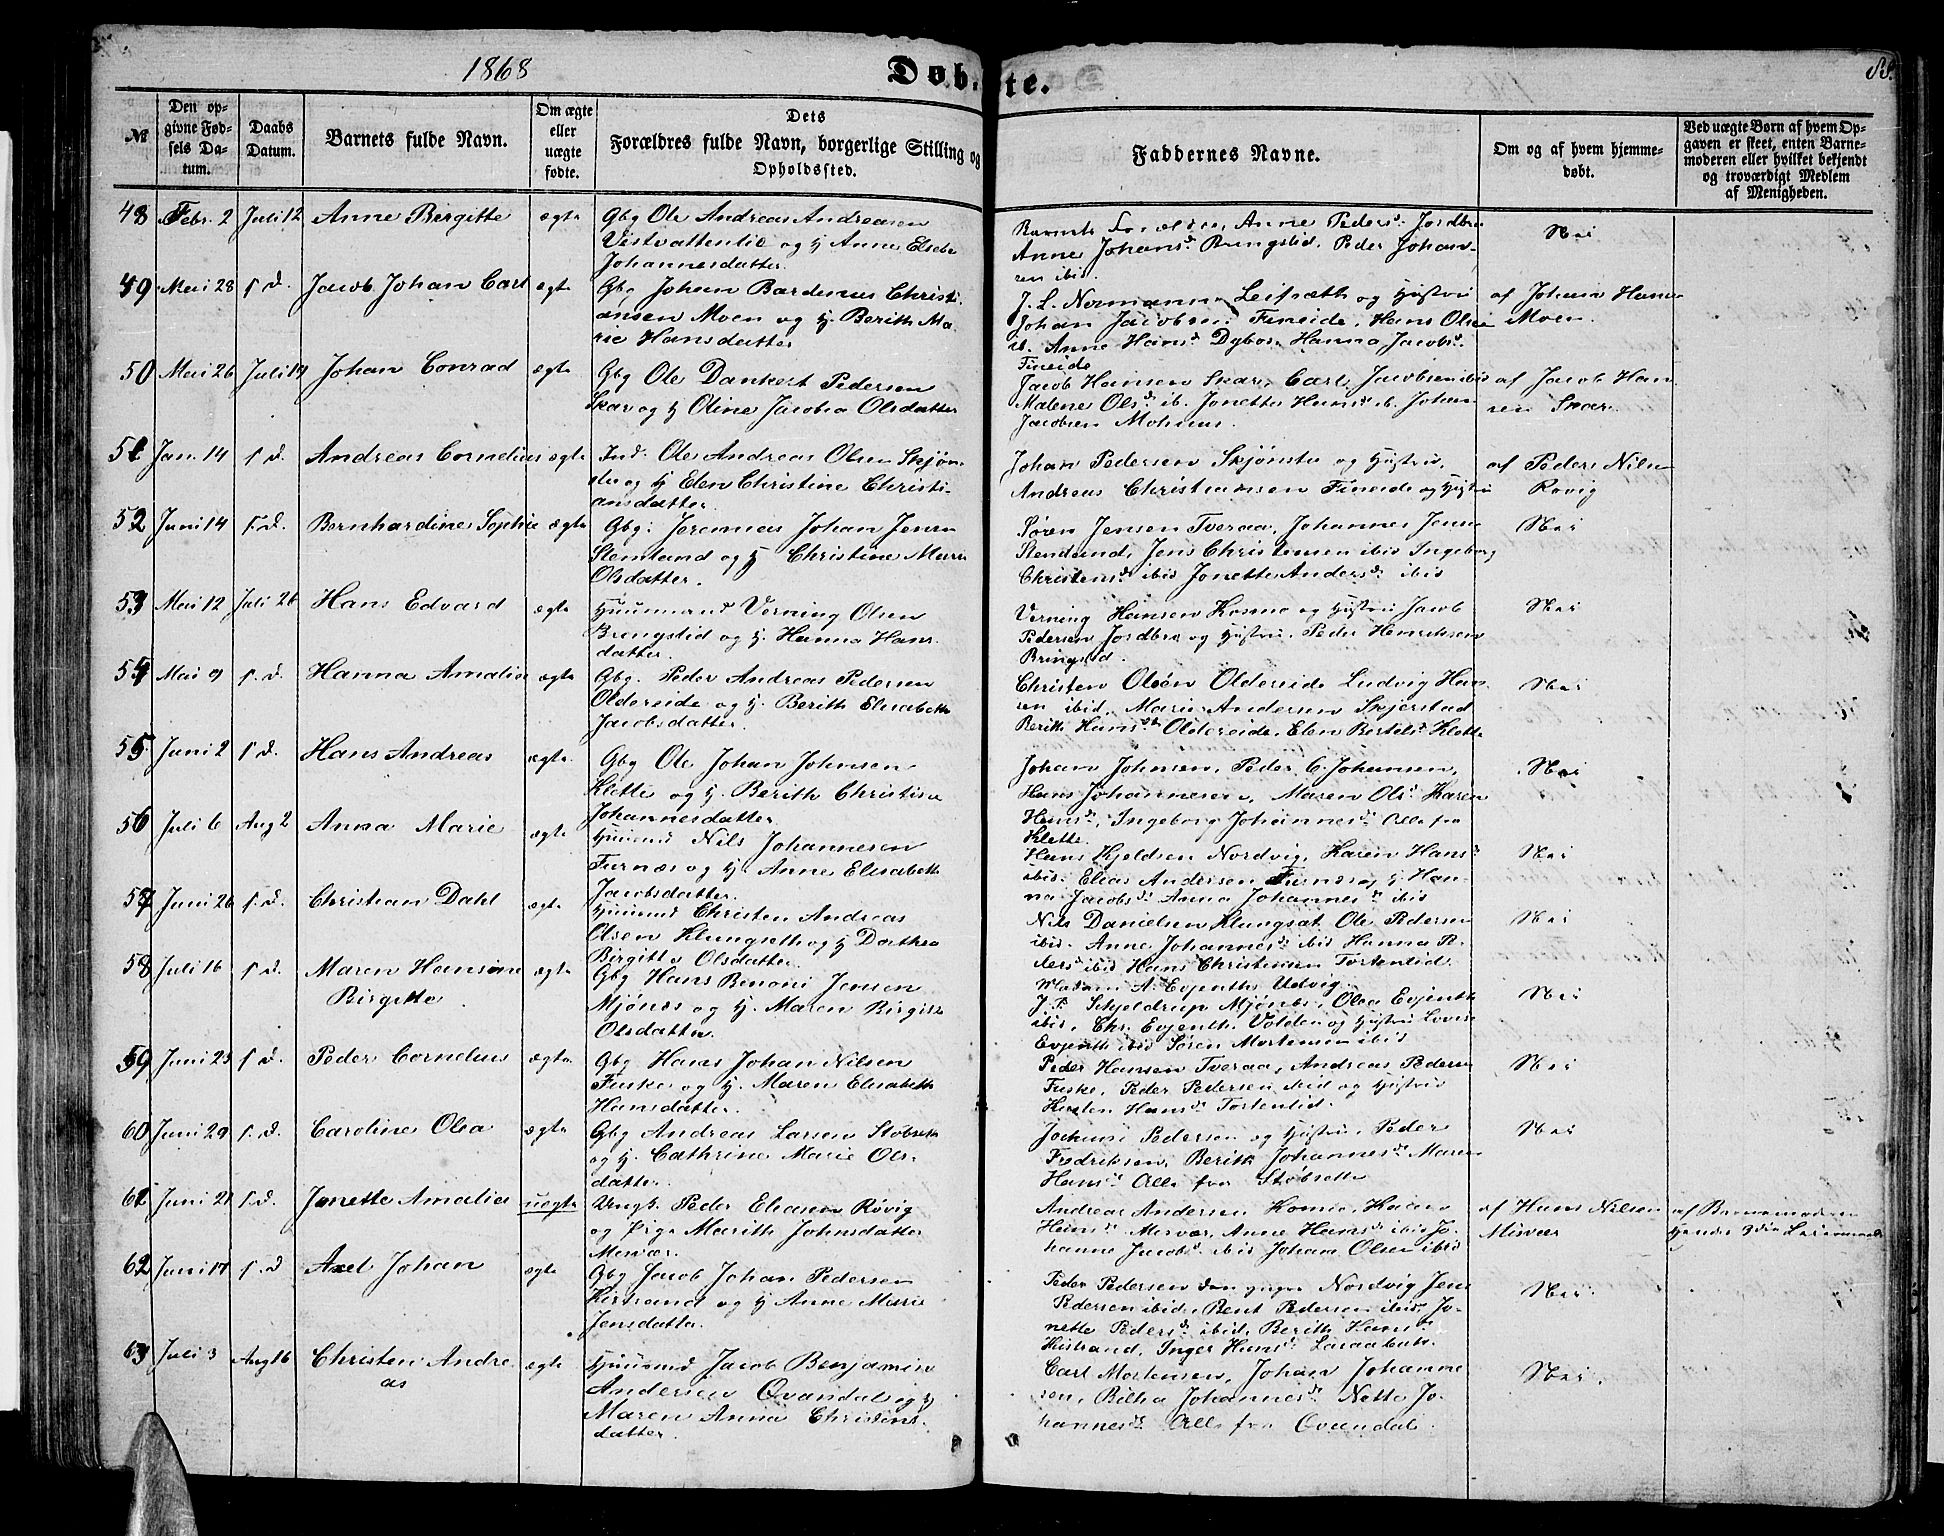 1868
Døbte.
№
Den opgivne Fødsels Datum.
Daabs Datum.
Barnets fulde Navn.
Om ægte eller uægte fødte.
Dets Forældres fulde Navn, borgerlige Stilling og Opholdssted.
Faddernes Navne.
Om og af hvem hjemmedøbt.
Ved uægte Børn af hvem Opgaven er skeet, enten Barnemoderen eller hvilket bekjendt og troværdigt Medlem af Menigheden.
48 Febr. 2 Juli 12 Anne Birgitte ægte Gbg Ole Andreas Andreasen
Vestvattenlie og H Anne Elsebe
Johannesdatter.
Barnets Forældre, Anne Peders d. Jordbro
Anne Johans d. Bringslid, Peder Johan-
sen ibid.
Nei
49 Mai 28 s. d. Jacob Johan Carl ægte Gbg Johan Bardinus Christi-
ansen Moen og H. Berith Ma-
rie Hansdatter
J. L. Normann Leifsæth og Hustru
Johan Jacobsen Fineide, Hans Olsen
ib. Anne Hans d. Hanna Jacobs d.
Fineide
af Johan Hans
Moen.
50 Mai 26 Juli 19 Johan Conrad ægte Gbg Ole Dankert Pedersen
Skar og H Oline Jacobia Olsdatter
Jacob Hansen Skar, Carl Jacobsen ibid
Malene Ols d. ib. Jonette Hans d. ib. Johan
Jacobsen
af Jacob Han-
sen Skar.
51 Jan. 14 s. d. Andreas Cornelius ægte Ind: Ole Andreas Olsen Skjøn-
stu og H Elen Christine Christi-
ansdatter.
Johan Pedersen Skjønstu og Hustru,
Andreas Christiansen Fineide og Hustru
af Peder Nilsen
Røvig
52 Juni 14 s. d. Bernhardine Sophie ægte Gbg: Jeremias Johan Jensen
Stemland og H Christine Marie
Olsdatter.
Søren Jensen Tveraa, Johannes Jensen
Stemland, Jens Christensen ibid Ingeborg
Christens d. ibid Jonette Anders d. ibid
Nei
53 Mai 12 Juli 26 Hans Edvard ægte Huusmand Verning Olsen
Bringslid og H. Hanna Hans-
datter.
Verning Hansen Kosmo og Hustru Jacob
Pedersen Jordbro og Hustru, Peder Henriksen
Bringslid.
Nei
54 Mai 9 s. d. Hanna Amalia ægte Gbg. Peder Andreas Pedersen
Oldereide og H. Berith Elisabeth
Jacobsdatter.
Christen Olsen Oldereide Ludvig Han-
sen ibid, Marie Andersen Skjerstad
Berith Hans d. Oldereide, Elen Bertels d. Klette
Nei
55 Juni 2 s. d. Hans Andreas ægte Gbg Ole Johan Johnsen
Klette og H. Berith Christine
Johannesdatter.
Johan Johnsen, Peder C. Johansen,
Hans Johannesen, Maren Ols d. Karen
Hans d. Ingeborg Johannes d. Alle fra
Klette.
Nei
56 Juli 6 Aug 2 Anna Marie ægte Huusmd Nils Johannesen
Furnæs og H. Anne Elisabeth
Jacobsdatter.
Hans Kjeldsen Nordvig, Karen Hans d.
ibid. Elias Andersen Furnæs og H. Han-
na Jacobs d. Anna Johannes d. ibid
Nei
57 Juni 26 s. d. Christian Dahl ægte Huusmd Christen Andreas
Olsen Klungseth og H Dorthea
Birgitte Olsdatter.
Nils Danielsen Klungsat, Ole Pedersen
ibid. Anne Johannes d. ibid Hanna Pe-
ders d. ibid Hans Christensen Tortenlid.
Nei
58 Juli 16 s. d. Maren Hansine
Birgitte
ægte Gbg Hans Benoni Jensen
Mjønæs og H. Maren Birgitte
Olsdatter.
Madam A. Evjenth Utvig,
J. P. Schjeldrup Mjønes, Olea Evjenth
ibid, Chr. Evjenth Volden og Hustru Lovise
Evjenth ibid Søren Mortensen ibid
Nei
59 Juni 23 s. d. Peder Cornelius ægte Gbg Hans Johan Nilsen
Fuske og H. Maren Elisabeth
Hansdatter.
Peder Hansen Tveraa, Andreas Pedersen
Fuske, Peder Pedersen ibid og Hustru
Kirsten Hans d. Tortenlid.
Nei
60 Juni 29 s. d. Caroline Olea ægte Gbg Andreas Larsen Støbseth
og H. Cathrine Marie Ols-
datter.
Jochum Pedersen og Hustru, Peder
Fredriksen, Berith Johannes d. Maren
Hans d. Alle fra Støbseth
Nei
61 Juni 21 s. d. Jonette Amalia uægte Ungk. Peder Eliasen Røvig
og Pige Marith Johnsdatter
Misvær.
Andreas Andersen Karen
Hans d. Misvær, Anne Hans d. ibid Jo-
hanne Jacobs d. ibid Johan Olsen ibid
af Hans Nilsen
Misvær
af Barnemoderen
Hendes
62 Juni 17 s. d. Axel Johan ægte Gbg Jacob Johan Pedersen
Kistrand og H Anne Marie
Jensdatter.
Peder Pedersen den yngre Nordvig Jens
Pedersen ibid, Bent Pedersen ibid, Jo-
nette Peders d. ibid, Berith Hans d.
Kistrand, Inger Hans d.
Nei.
63 Juli 3 Aug 16 Christen Andre-
as
ægte Huusmd Jacob Benjamin
Andersen Qvandal og H
Maren Anna Christens-
datter.
Carl Mortensen, Johan Johanne-
sen, Bilha Johannes d. Nette Jo-
hannes d. Alle fra Qvandal.
Nei.